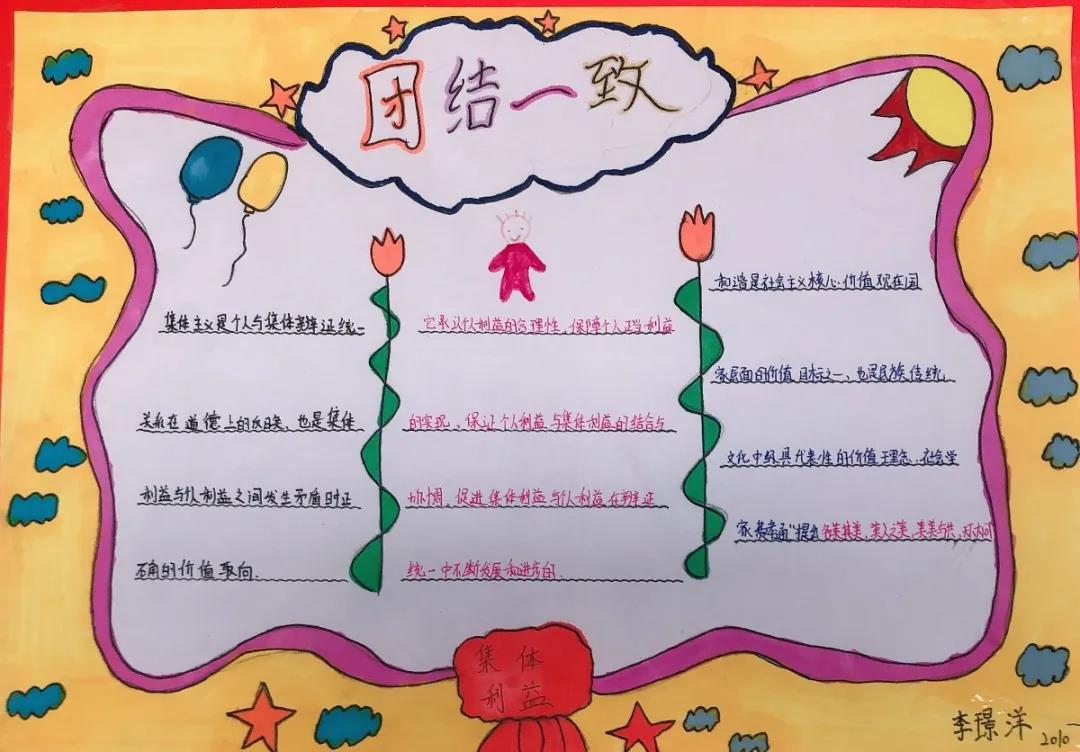 团结一致
集体主义是个人与集体辩证统一
关系在道德上的反映，也是集体
利益与个人利益之间发生矛盾时正
确的价值取向.
它承认个人利益的合理性，保障个人正当利益
的实现，保证个人利益与集体利益的结合与
协调，促进集体利益与个人利益在辩证
统一中不断发展和进步的.
和谐是社会主义核心价值观在国
家层面的价值目标之一，也是民族传统
文化中极具代表性的价值理念.社会学
家费孝通"提出各美其美，美人之美，美美与共，天下大同
集体
利益
李璟洋
2010